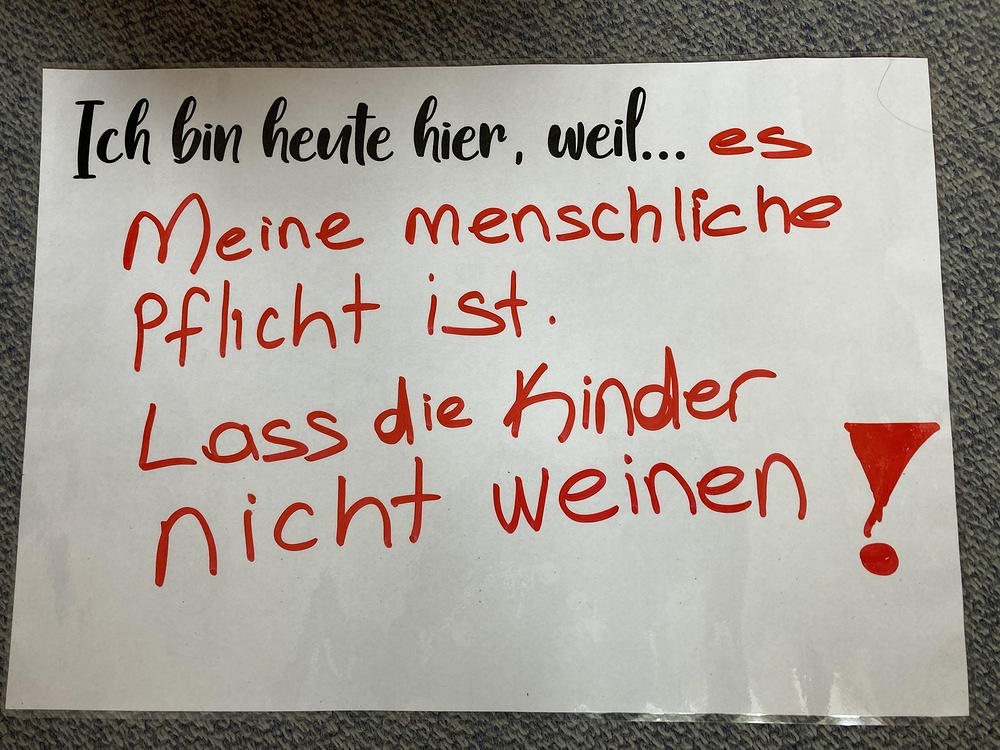 Ich bin heute hier, weil... es
Meine menschliche
Pflicht ist.
Lass die Kinder
nicht weinen!